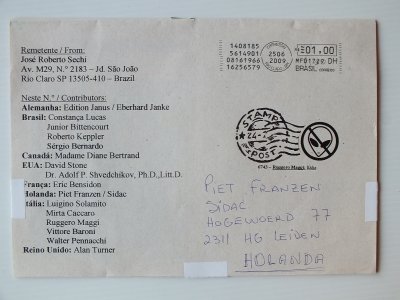 Remetente / From:
José Roberto Sechi
Av. M29, N.º 2183 – Jd. São João
Rio Claro SP 13505-410 – Brazil
Neste N.º / Contributors:
Alemanha: Edition Janus / Eberhard Janke
Brasil: Constança Lucas
Junior Bittencourt
Roberto Keppler
Sérgio Bernardo
Canadá: Madame Diane Bertrand
EUA: David Stone
Dr. Adolf P. Shvedchikov, Ph.D.,Litt.D.
França: Eric Bensidon
Holanda: Piet Franzen / Sidac
Itália: Luigino Solamito
Mirta Caccaro
Ruggero Maggi
Vittore Baroni
Walter Pennacchi
Reino Unido: Alan Turner
1408185
5614901
08161966
16256579
2506
2009
01,00
BRASIL
STAMP
POST
6743 – Ruggero Maggi, Itália
PIET FRANZEN
SIDAC
HOGEWOERD 77
2311 HG LEIDEN
HOLANDA